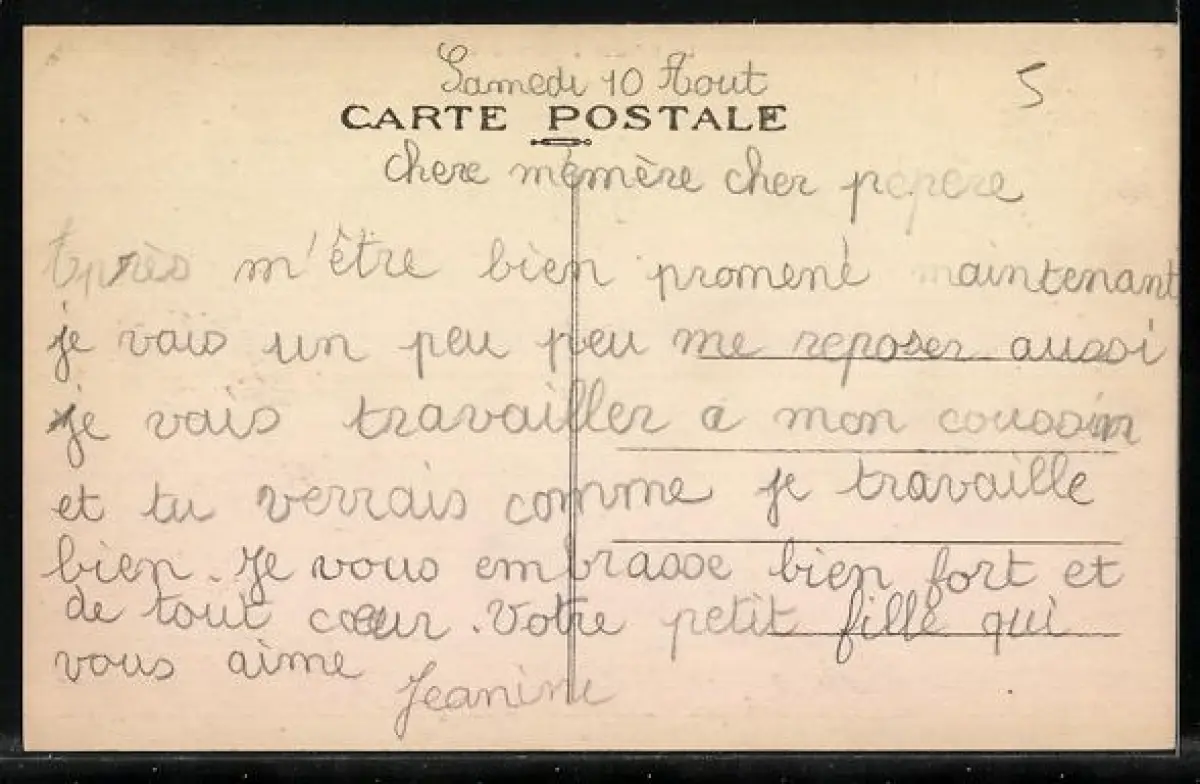 Samedi 10 Aout
5
CARTE POSTALE
chere mémère cher pepere
Après m'être bien promené maintenant
je vais un peu peu me reposer aussi
je vais travailler a mon coussin
et tu verrais comme je travaille
bien. Je vous embrasse bien fort et
de tout cœur. Votre petit fille qui
vous aime
Jeanine